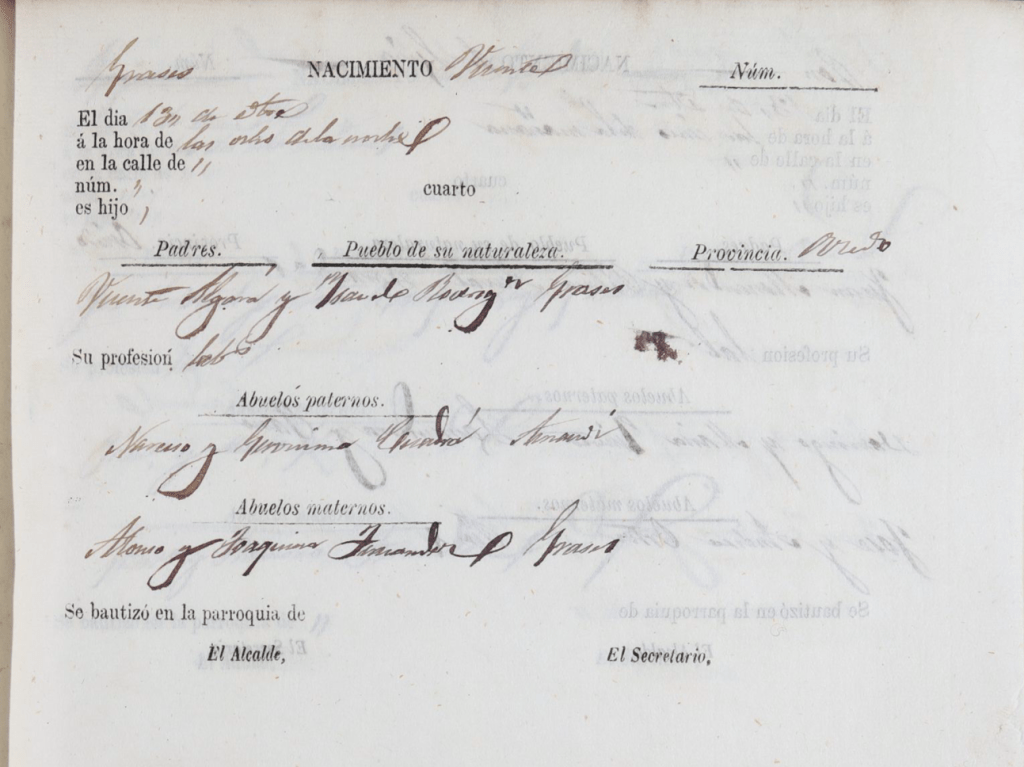 Grases NACIMIENTO Vicente Núm.
El dia 13 de
á la hora de las ocho de la noche
en la calle de "
núm. " cuarto
es hijo "
Padres. Pueblo de su naturaleza. Provincia. Oviedo
Vicente y Rodrigᶻ Grases
Su profesion labᵒʳ
Abuelos paternos.
Narciso y Geronima
Abuelos maternos.
Alonso y Joaquina Fernandez Grases
Se bautizó en la parroquia de
El Alcalde, El Secretario,